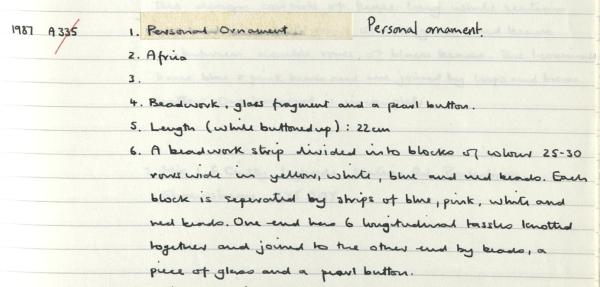 1987 A335 1. Personal Ornament Personal ornament.
2. Africa
3.
4. Beadwork, glass fragment and a pearl button.
5. Length (while buttoned up) : 22cm
6. A beadwork strip divided into blocks of colour 25-30
rows wide in yellow, white, blue and red beads. Each
block is seperated by strips of blue, pink, white and
red beads. One end has 6 longitudinal tassles knotted
together and joined to the other end by beads, a
piece of glass and a pearl button.